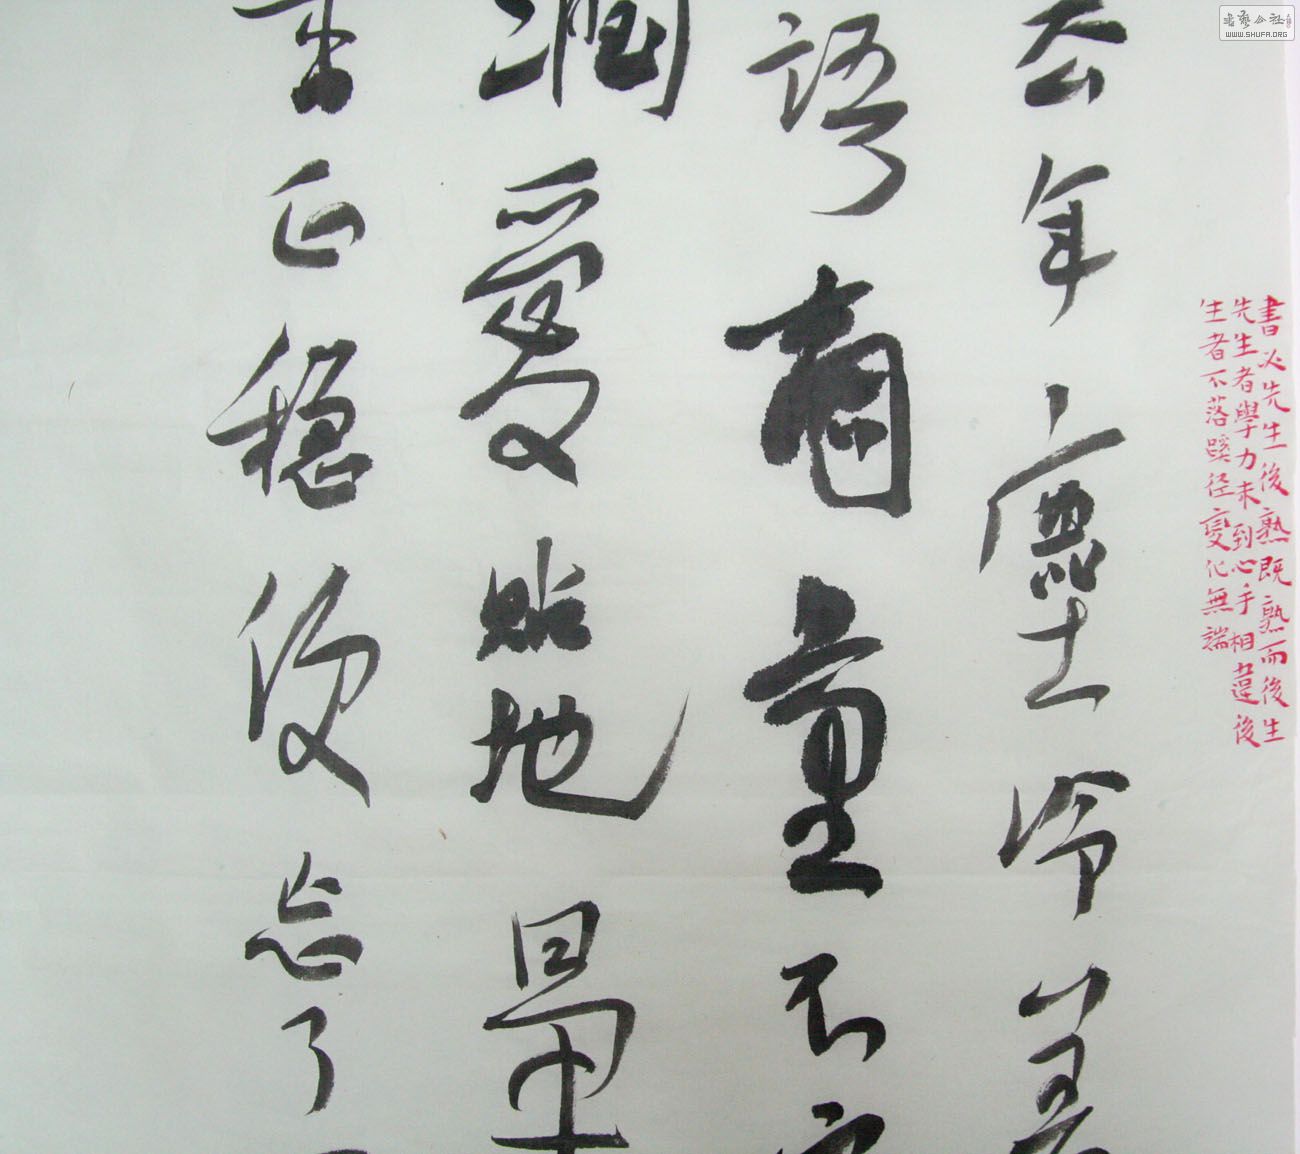 書藝公社
WWW.SHUFA.ORG
書必先生後熟既熟而後生
先生者學力未到心手相違後
生者不落蹊径變化無端
去年塵冷差
語商量不定
潤愛貼地
香正穩便忘了